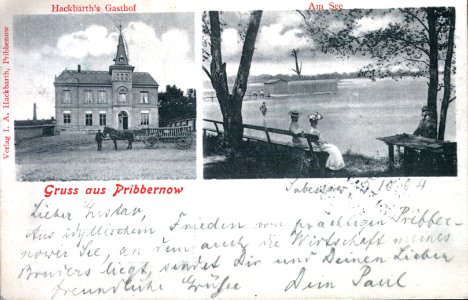 Hackbarth's Gasthof
Am See
Verlag I. A. Hackbarth, Pribbenow
Gruss aus Pribbernow
10 04
Lieber Gustav,
Aus idyllischem Frieden vom prächtigen Pribber-
nower See, an dem auch die Wirtschaft meines
Bruders liegt, sendet Dir und Deinen Lieben
freundliche Grüße Dein Paul